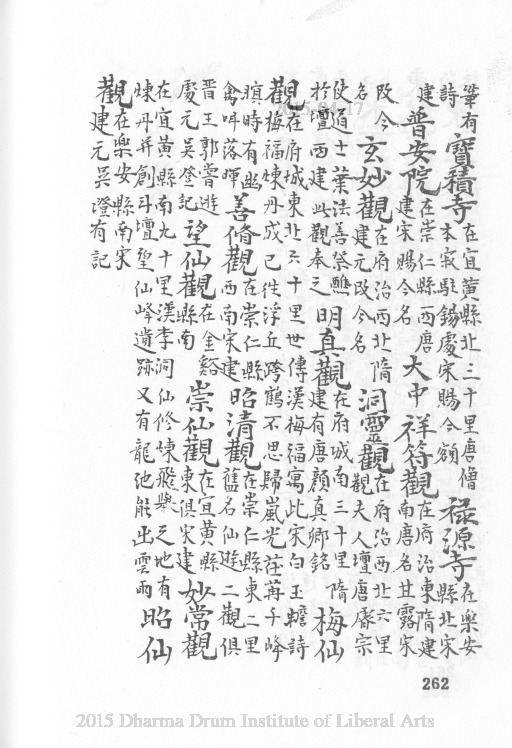 筆有詩寶積寺在宜黃縣北三十里唐僧本寂駐錫處宋賜今額祿源寺在樂安縣北宋
建普安院在崇仁縣西唐建宋賜今名大中祥符觀在府治東隋建南唐名甘露宋
改今名玄妙觀在府治西北隋建元改今名洞靈觀在府治西北六里觀夫人壇唐睿宗
使道士葉法善蔡醮於壇西建此觀奉之明真觀在府城南三十里隋建有唐顏真卿銘梅仙
觀在府城東北六十里世傳漢梅福寓此宋白玉蟾詩梅福煉丹成已徃浮丘跨鶴不思歸嵐光荏苒千峰
暝時有幽禽呌落暉善脩觀在崇仁縣西南宋建昭清觀在崇仁縣東二里舊名仙遊二觀俱
晉王郭曾遊處元吳登記望仙觀在金谿縣南崇仙觀在宜黃縣東俱宋建妙常觀
在宜黃縣南九十里漢李洞仙修煉飛舉之地有煉丹井創斗壇望仙峰遺跡又有龍池能出雲雨昭仙
觀在樂安縣南宋建元吳澄有記
262
2015 Dharma Drum Institute of Liberal Arts